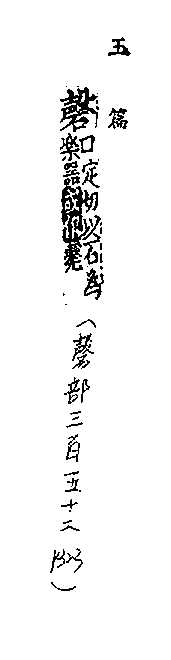 玉篇
磬口定切以石為
樂器
（磬部三百五十二